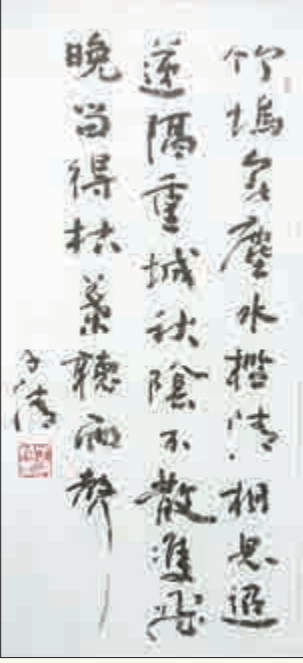 竹塢無塵水檻清相思迢
遞隔重城秋陰不散霜飛
晚留得枯葉聽雨聲
子清